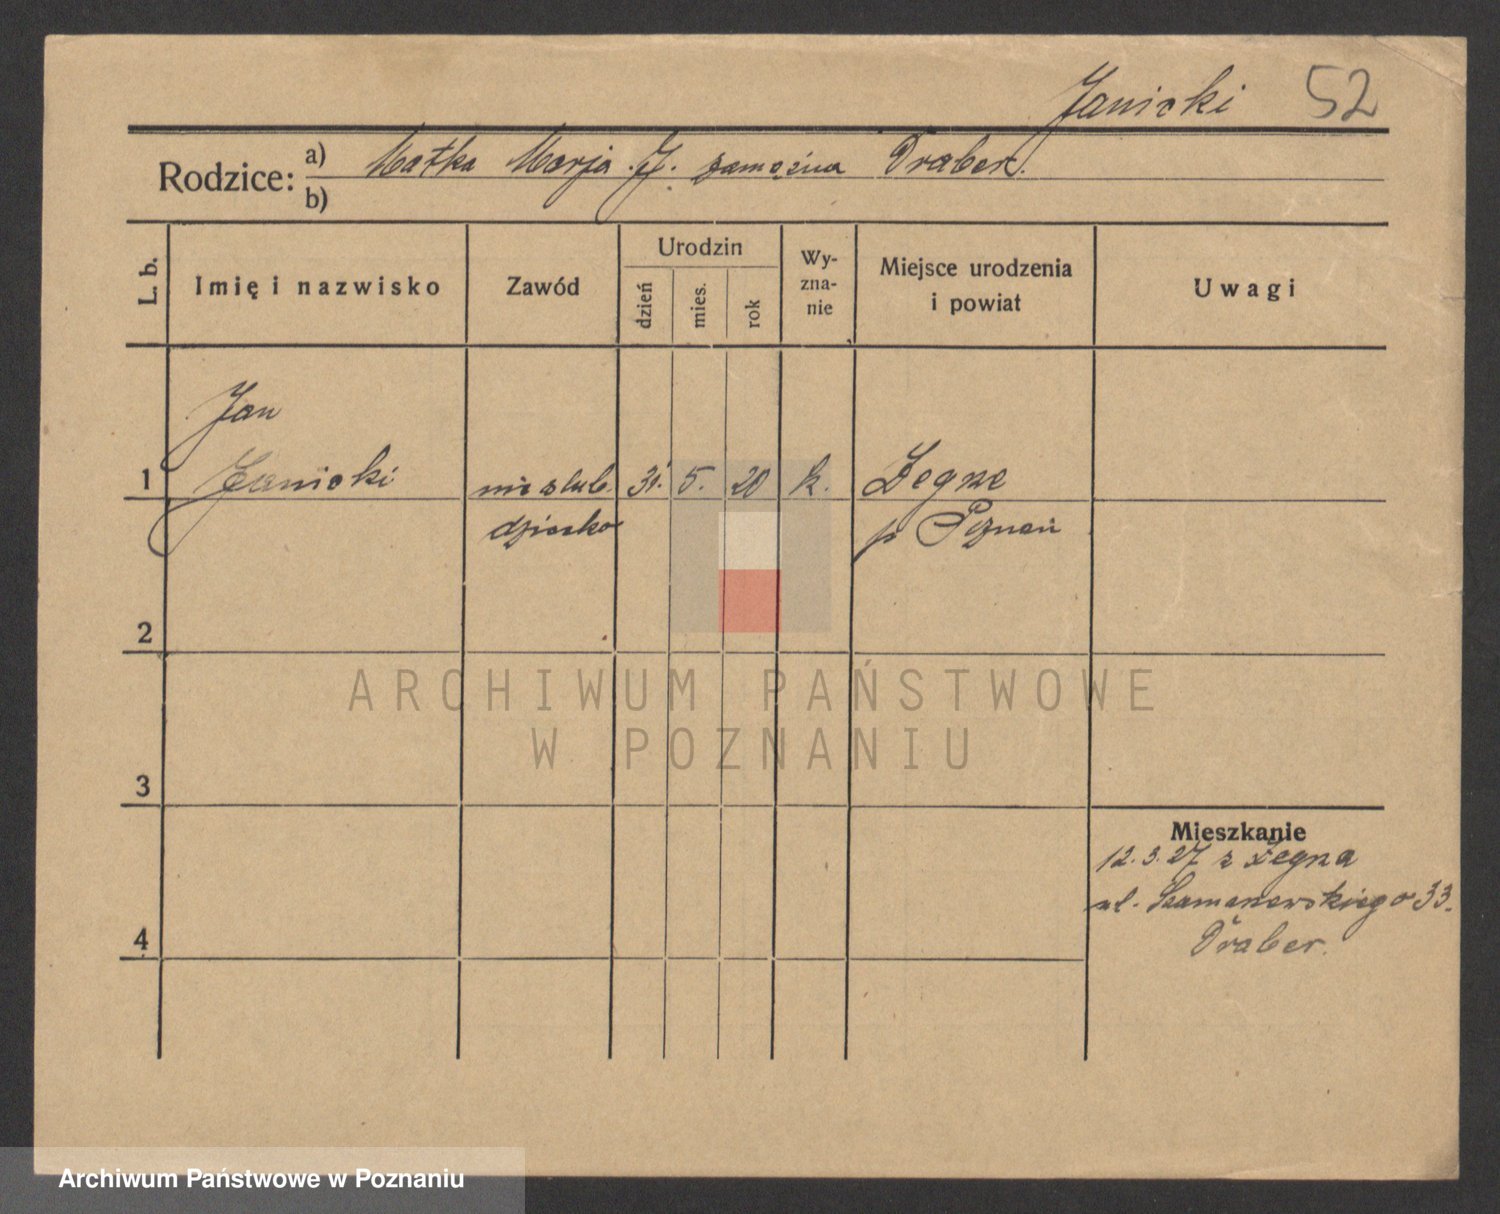 Janicki 52
Rodzice: a) Matka Marja J. zamężna Draber.
b)
L. b.
Imię i nazwisko
Zawód
Urodzin
dzień
mies.
rok
Wy-
zna-
nie
Miejsce urodzenia
i powiat
Uwagi
Jan
1 Janicki nieślub. 31. 5. 20 k. Żegrze
dziecko p Poznań
2
ARCHIWUM PAŃSTWOWE
W POZNANIU
3
Mieszkanie
12.3.27 z Żegrza
ul. 33.
4
Draber.
Archiwum Państwowe w Poznaniu